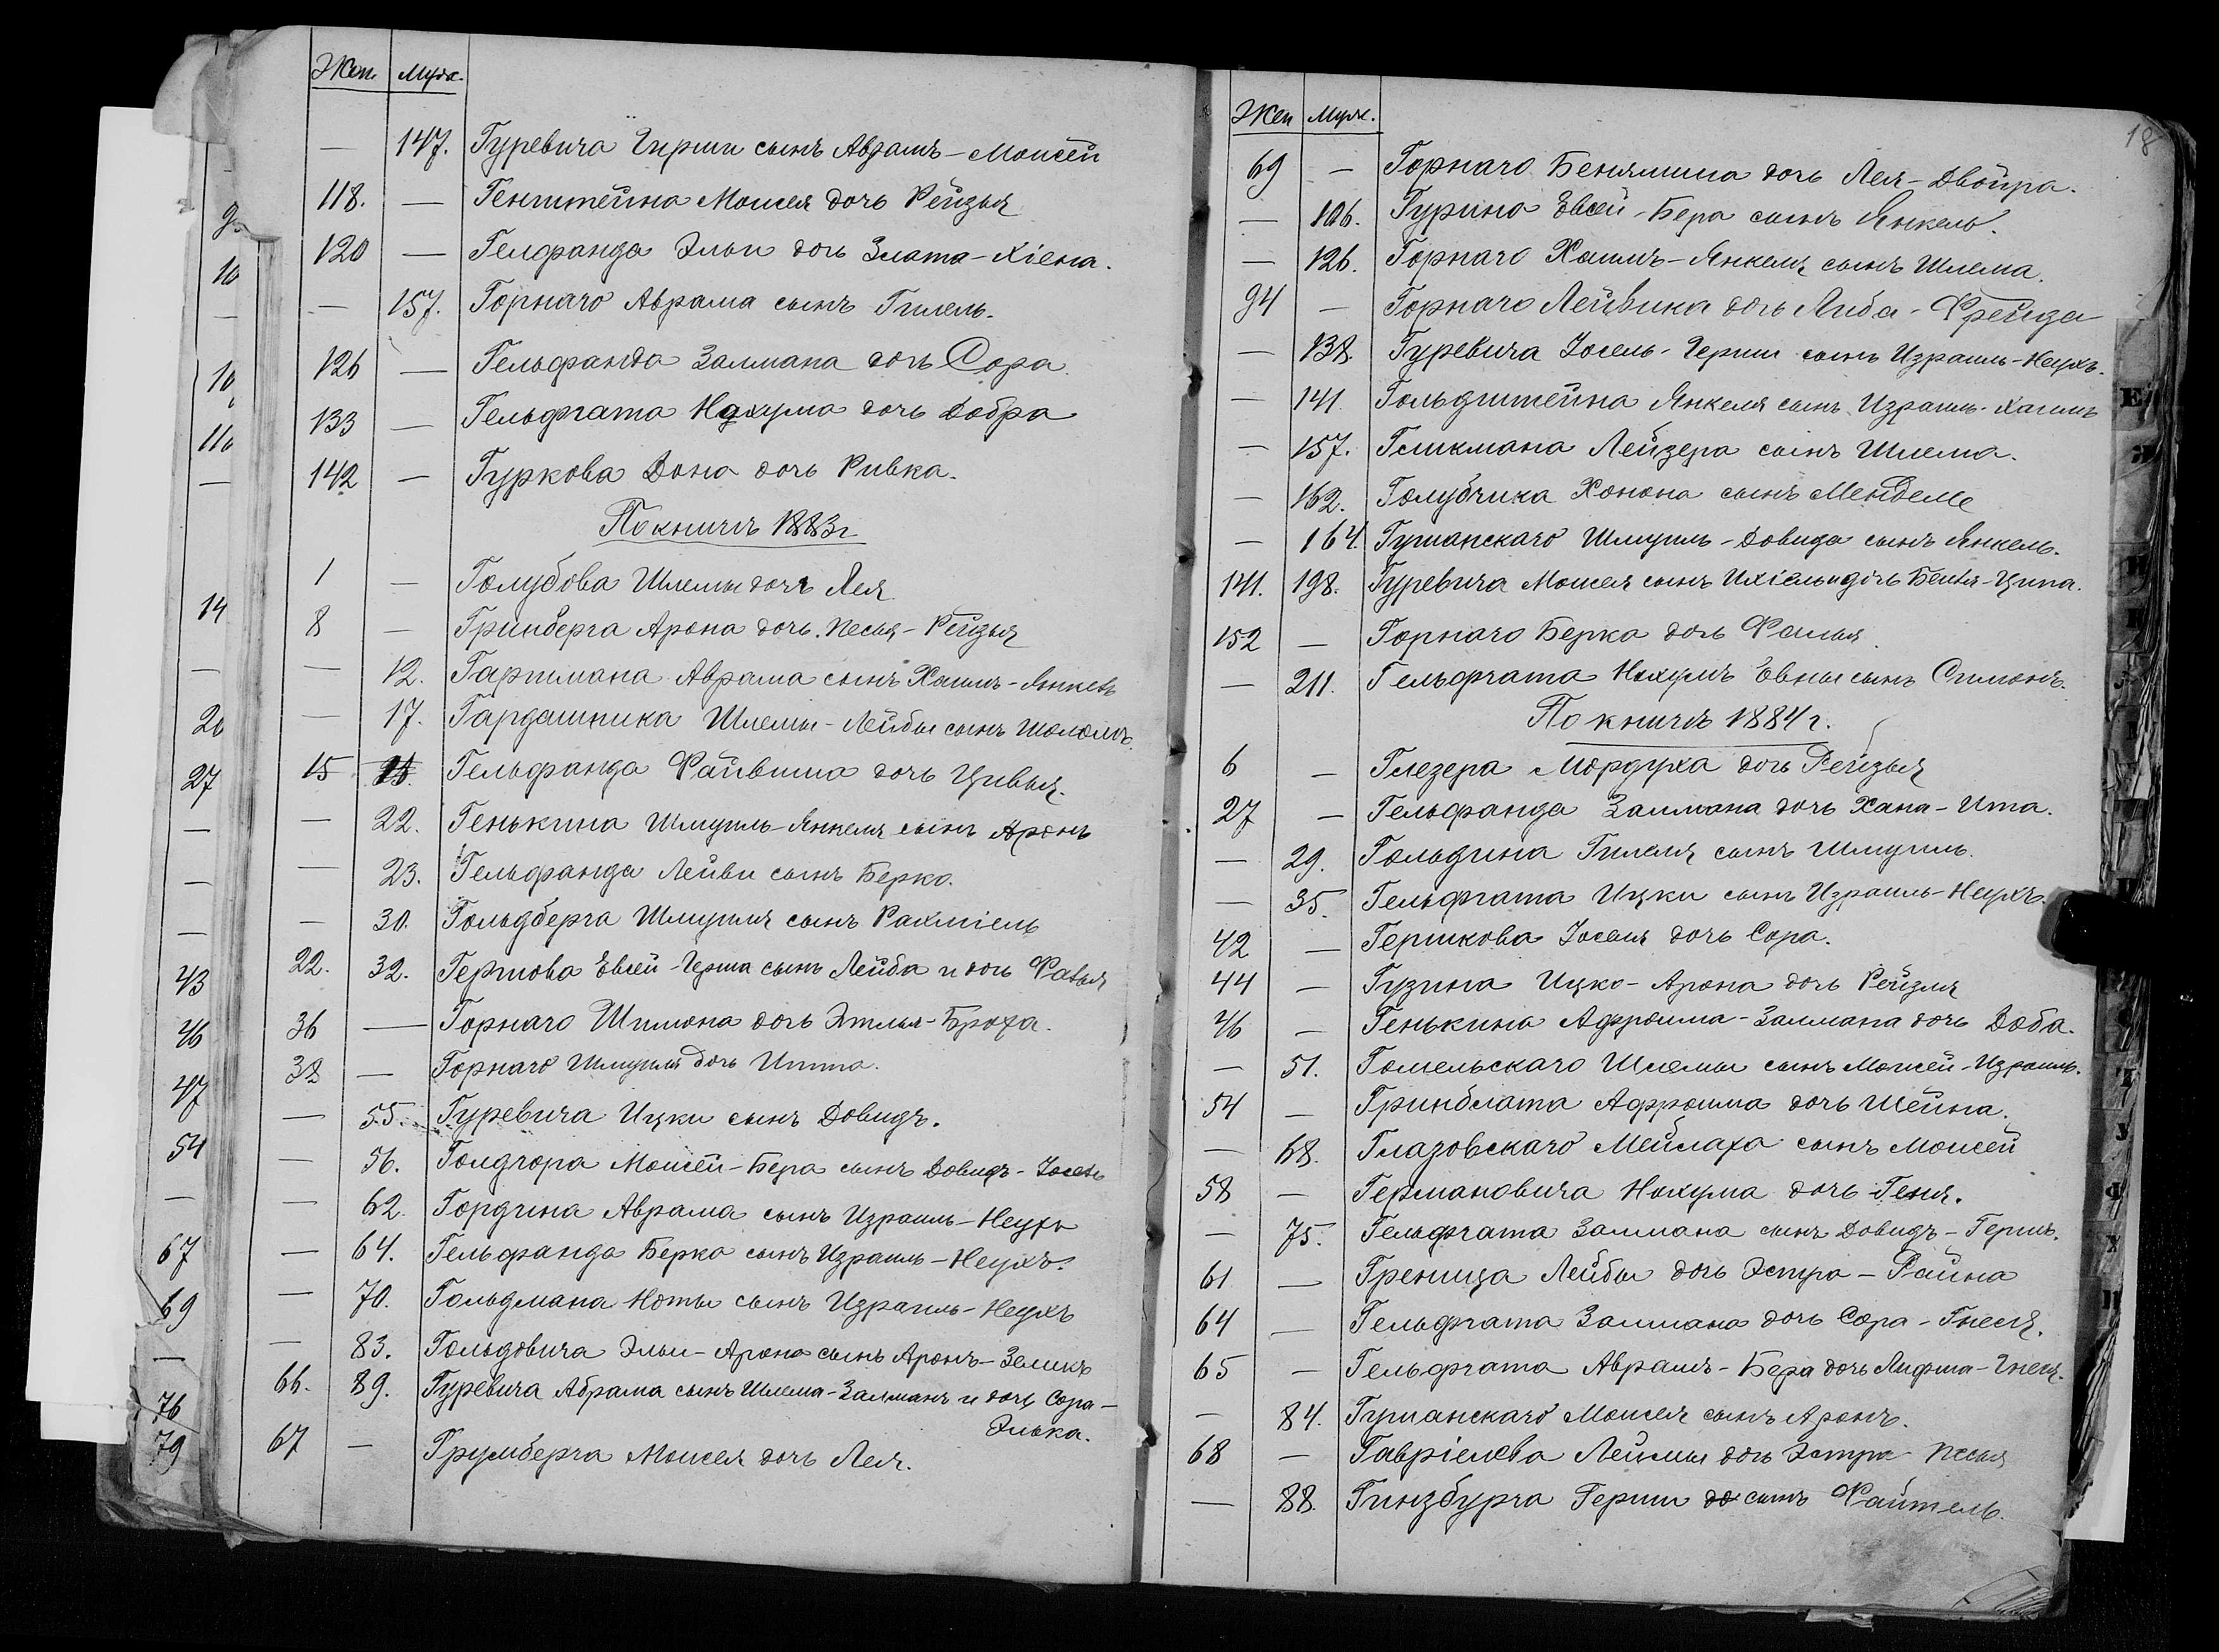 Жен. Муж.
— 147. Гуревича Гирши сынъ Аврамъ-Моисей
118. — Генштейна Моисея дочь Рейзья
120 — Гелфанда Эльи дочь Злата-Хіена.
— 157. Горнаго Аврама сынъ Гилель.
126 — Гельфанда Залмана дочь Сора
133 — Гельфгата Нохума дочь Добра
142 — Гуркова Дона дочь Ривка.
По книгѣ 1883 г
1 — Голубова Шлемы дочь Лея
8 — Гринберга Арона дочь Песья-Рейзья
— 12. Гаришмана Аврама сынъ Хаимъ-Янкель
— 17. Гардашника Шлемы-Лейбы сынъ Шоломъ.
15 Гельфанда Файвиша дочь Цивья.
— 22. Генькина Шмуиль-Янкеля сынъ Аронъ
— 23. Гельфанда Лейви сынъ Берко.
— 30. Гольдберга Шмуиля сынъ Рахміель
22. 32. Гершова Евсей-Герша сынъ Лейба и дочь
36 — Горнаго Шимона дочь Этлья-Броха.
38 — Горнаго Шмуиля дочь Итта.
— 55. Гуревича Ицки сынъ Довидъ.
— 56. Моисей-Бера сынъ Довидъ-Іосель
— 62. Гордина Аврама сынъ Израиль-Неухъ
— 64. Гельфанда Берка сынъ Израиль-Неухъ.
— 70. Гольдмана Ноты сынъ Израиль-Неухъ
— 83. Гольдовича Эльи-Арона сынъ Аронъ-Зеликъ
66. 89. Гуревича Абрама сынъ Шлема-Залманъ и дочь Сора-
Элька.
67 — Грумберга Моисея дочь Лея.
9
10
—
10
11
—
14
—
20
27
—
—
—
43
46
47
54
—
67
69
—
76
79
18
Жен Муж.
69 — Горнаго Беньямина дочь Лея-Двойра.
— 106. Гурина Евсей-Бера сынъ Янкель.
— 126. Горнаго Хаимъ-Янкеля сынъ Шлема.
94 — Горнаго Лейвика дочь Либа-Фрейда
— 138. Гуревича Іосель-Герши сынъ Израиль-Неухъ.
— 141. Гольдштейна Янкеля сынъ Израиль-Хаимъ
— 157. Гликмана Лейзера сынъ Шлема.
— 162. Голубчика Хонона сынъ Менделе
— 164. Гуманскаго Шмуиль-Довида сынъ Янкель.
141. 198. Гуревича Моисея сынъ Ихіель и дочь Бейля-Ципа.
152 — Горнаго Берка дочь
— 211. Гельфгата Нохумъ Евны сынъ Симонъ.
По книгѣ 1884 г.
6 — Глезера Мордуха дочь Рейзья
27 — Гельфанда Залмана дочь Хана-Ита.
— 29. Гольдина Гилеля сынъ Шмуиль.
— 35. Гельфгата Ицки сынъ Израиль-Неухъ.
42 — Гершкова Іоселя дочь Сора.
44 — Гузина Ицко-Арона дочь Рейзля
46 — Генькина Афроима-Залмана дочь Доба.
— 51. Гомельскаго Шлемы сынъ Моисей-Израиль.
54 — Гринблата Афроима дочь Шейна.
— 68. Глазовскаго Мейлаха сынъ Моисей
58 — Германовича Нохума дочь Геня.
— 75. Гельфгата Залмана сынъ Довидъ-Гершъ.
61 — Греница Лейбы дочь Эстра-Райна
64 — Гельфгата Залмана дочь Сора-Гнеся.
65 — Гельфгата Аврамъ-Бера дочь
— 84. Гуманскаго Моисея сынъ Аронъ.
68 — Гавріелева Лейзы дочь Эстра-Песья
— 88. Гинзбурга Герши сынъ Файтель.